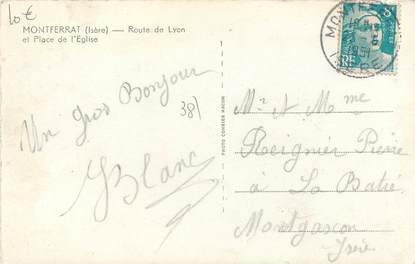 10€
MONTFERRAT (Isère) — Route de Lyon
et Place de l'Eglise
Un gros Bonjour
381
Blanc
PHOTO COMBIER MACON
RF
Mr et Mme
Reignier Pierre
à La Batie
Montgascon
Isère